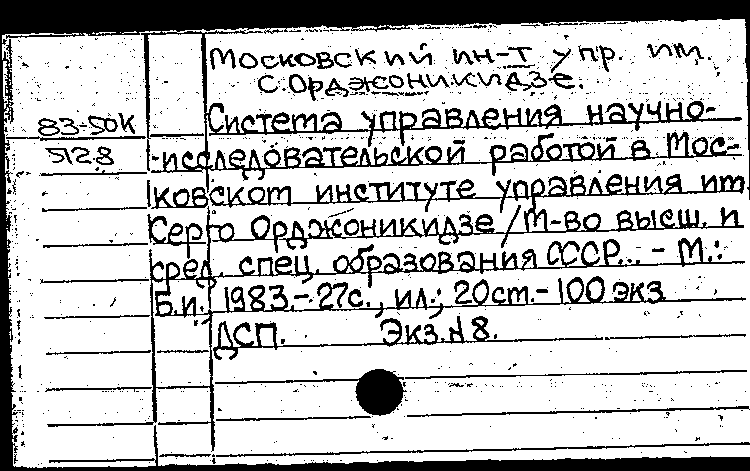 Московский ин-т упр. им.
С.Орджоникидзе.
83-50К
5128
Система управления научно-
-исследовательской работой в Мос-
ковском институте управления им.
Серго Орджоникидзе /М-во высш. и
сред. спец. образования СССР... - М.:
Б.и., 1983.- 27с., ил.; 20см.- 100 экз
ДСП. Экз.№8.